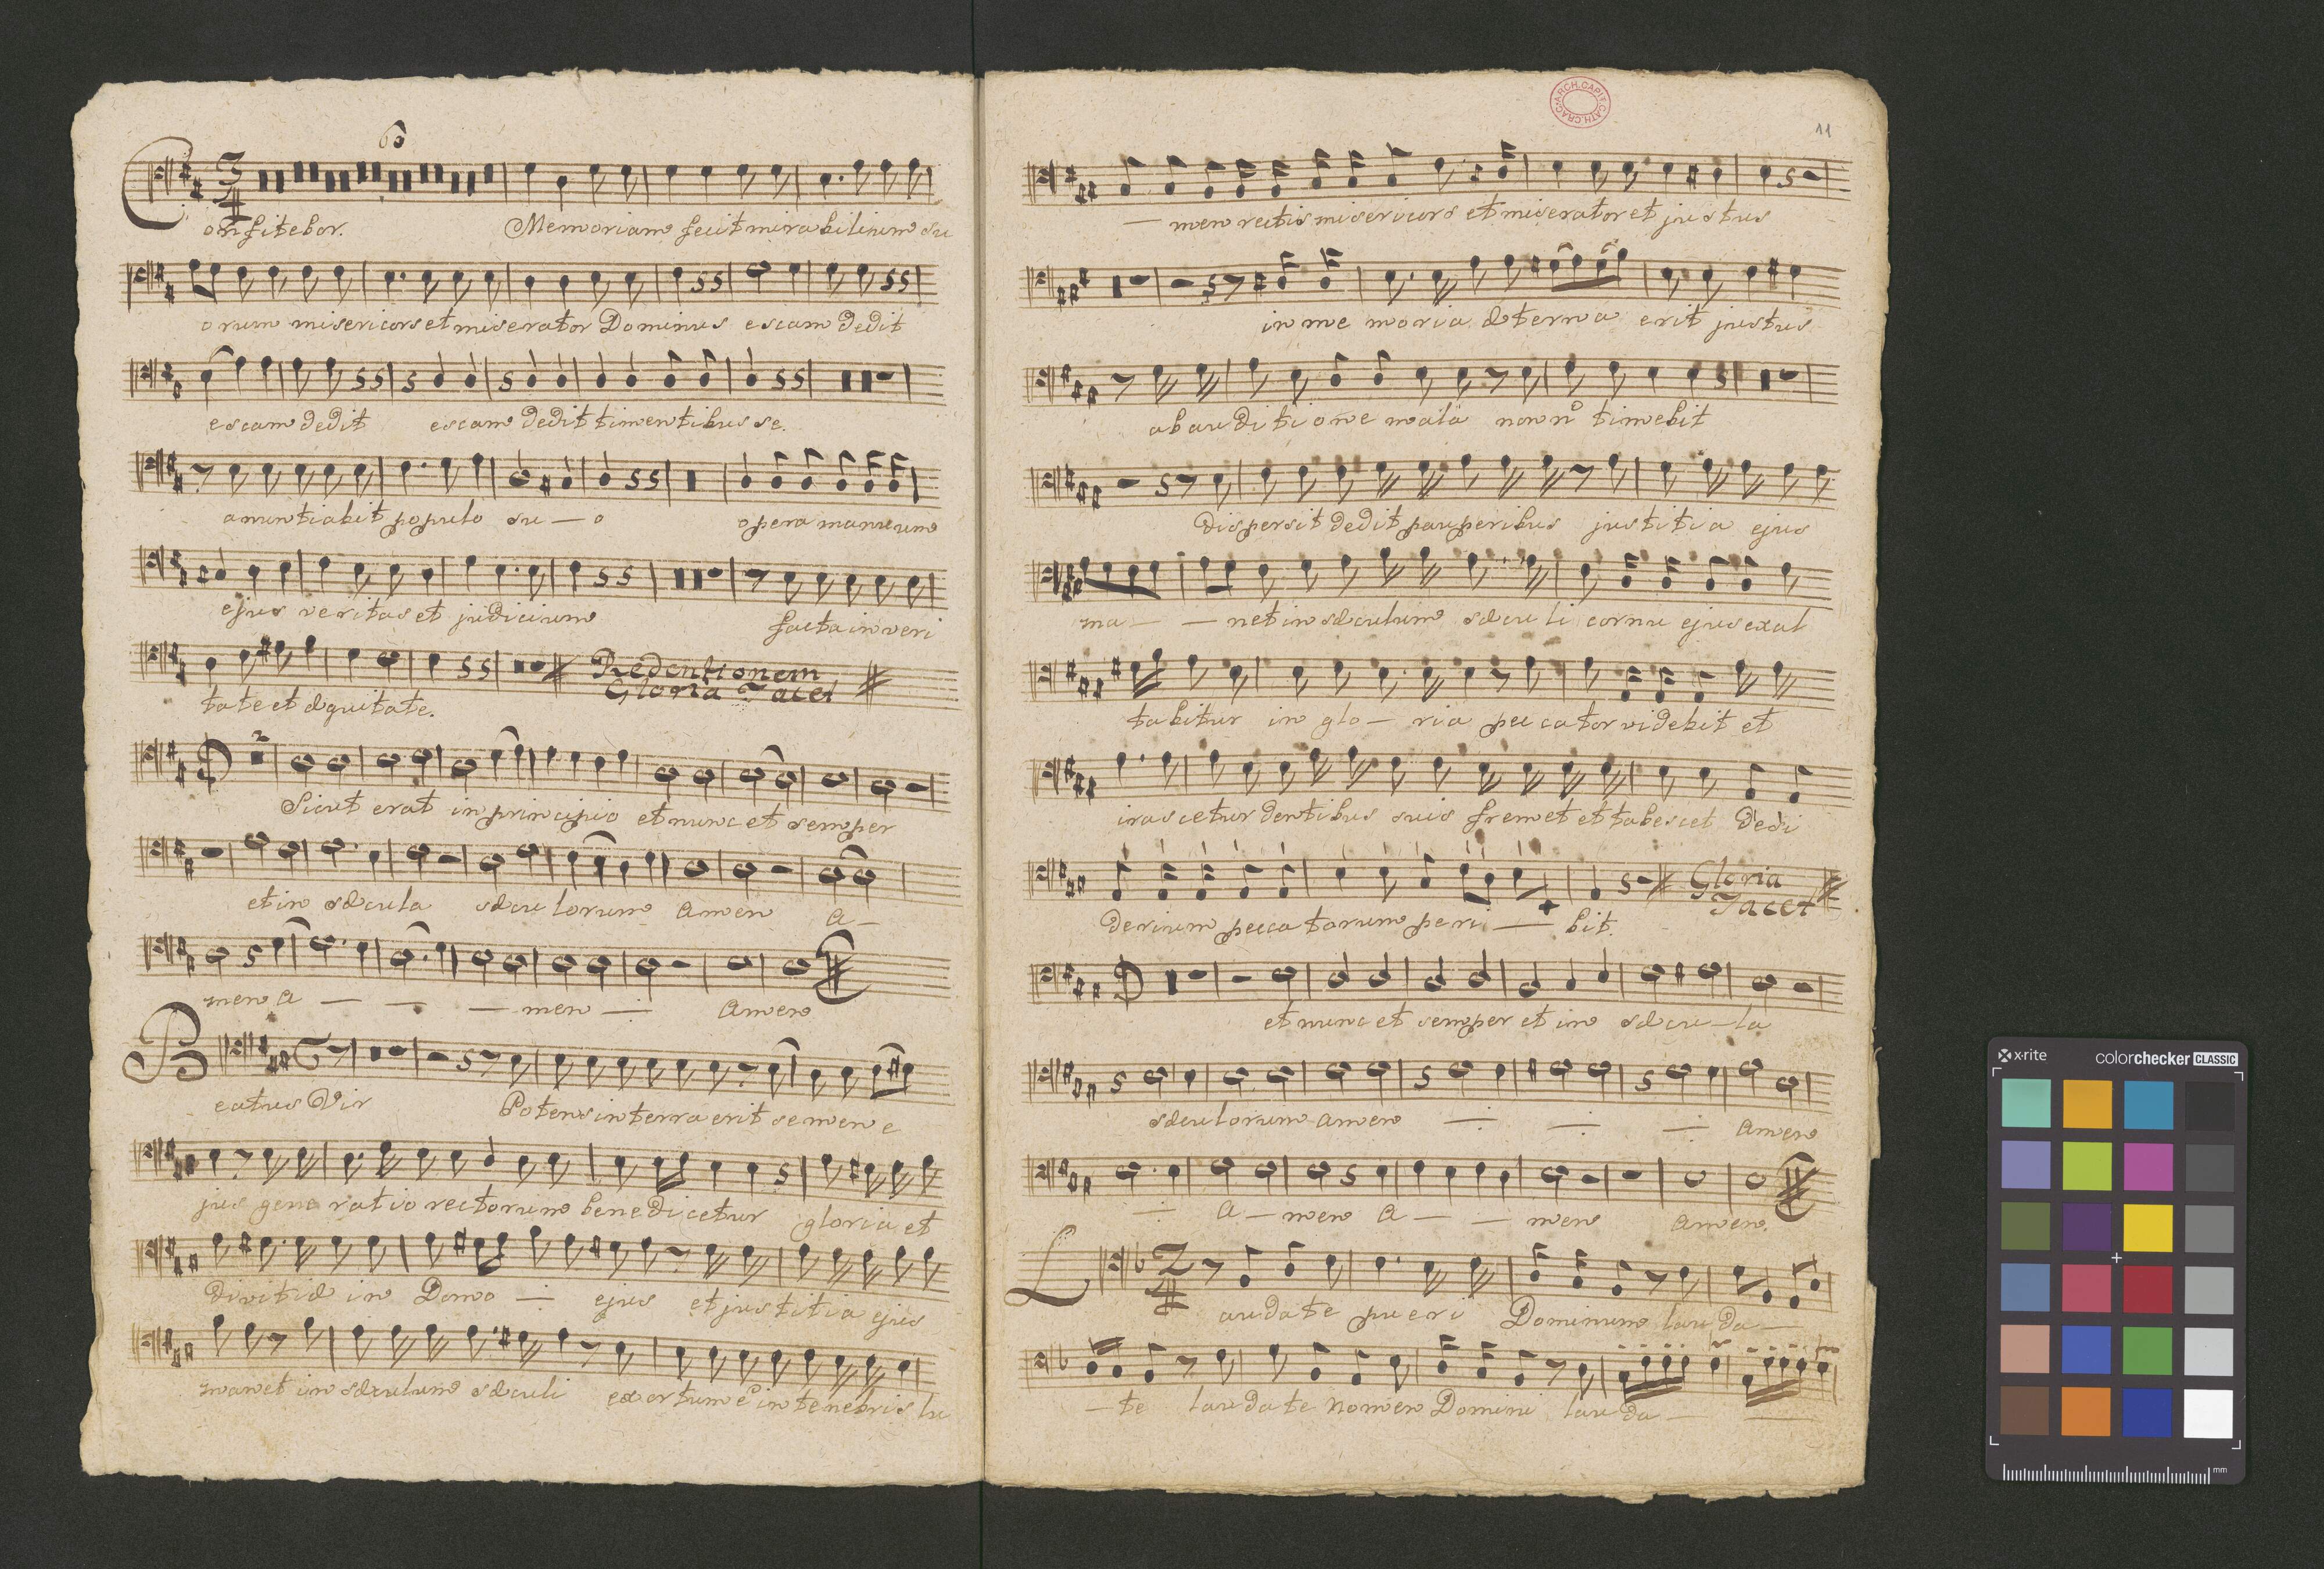 63
Confitebor. Memoriam fecit mirabilium su
orum misericors et miserator Dominus escam dedit
escam dedit escam dedit timentibus se.
anuntiabit populo su — o opera manuum
ejus veritas et judicium facta in veri
tate et æquitate. Redentionem
Gloria Tacet
2
Sicut erat in principio et nunc et semper
et in sæcula sæculorum Amen A —
men A — — — men Amen
Beatus Vir Potens in terra erit semen e
jus gene ratio rectorum benedicetur gloria et
divitiæ in Domo ejus et justitia ejus
manet in sæculum sæculi exortum e in tenebris lu
ARCH.CAPIT.CATH.CRAC.
11
— men rectis misericors et miserator et justus
in me moria æterna erit justus
ab auditione mala non timebit
dispersit dedit pauperibus justitia ejus
ma — — net in sæculum sæculi cornu ejus exal
tabitur in glo — ria peccator videbit et
irascetur dentibus suis fremet et tabescet desi
derium peccatorum peri — bit. Gloria
Tacet
et nunc et semper et in sæcu — la
sæculorum Amen Amen
A — men A — — men Amen.
Laudate pueri Dominum lau da —
— te laudate nomen Domini lau da — —
x-rite colorchecker CLASSIC
mm